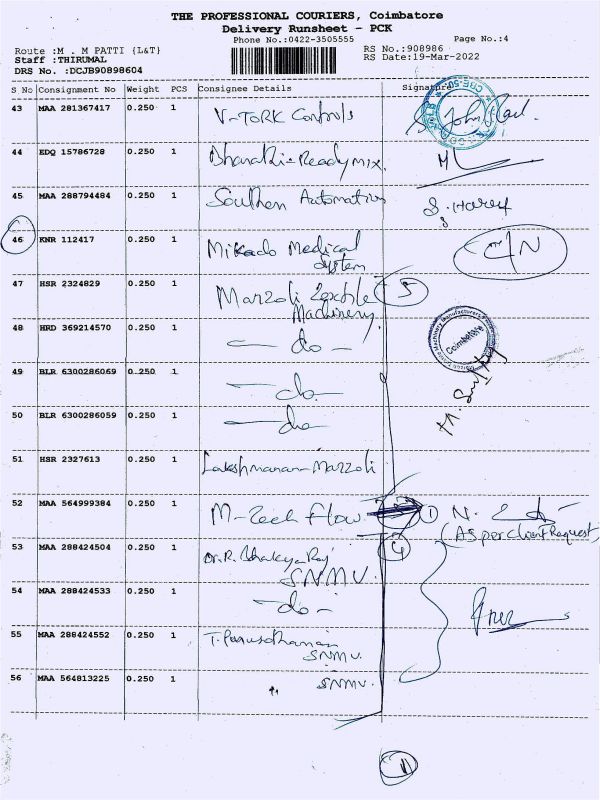 THE PROFESSIONAL COURIERS, Coimbatore
Delivery Runsheet - PCK
Phone No.:0422-3505555
Page No.:4
Route :M . M PATTI {L&T}
RS No.:908986
Staff :THIRUMAL
RS Date:19-Mar-2022
DRS No. :DCJB90898604
S No Consignment No Weight PCS Consignee Details Signature
43 MAA 281367417 0.250 1 V-TORK Controls
44 EDQ 15786728 0.250 1 Bharathi-Readymix.
45 MAA 288794484 0.250 1 Southen Automation S. Harry
46 KNR 112417 0.250 1 Mikado Medical
System
47 HSR 2324829 0.250 1 Marzoli Textile 5
Machinery
48 HRD 369214570 0.250 1 - do - Coimbatore
49 BLR 6300286069 0.250 1 - do -
50 BLR 6300286059 0.250 1 - do -
51 HSR 2327613 0.250 1 Lakshmanan-Marzoli
52 MAA 564999384 0.250 1 M-Tech flow 1
(As per client Request)
53 MAA 288424504 0.250 1 Dr. R. 4
SNMV.
54 MAA 288424533 0.250 1 - do -
55 MAA 288424552 0.250 1 T.
SNMV.
56 MAA 564813225 0.250 1 SNMV.
11